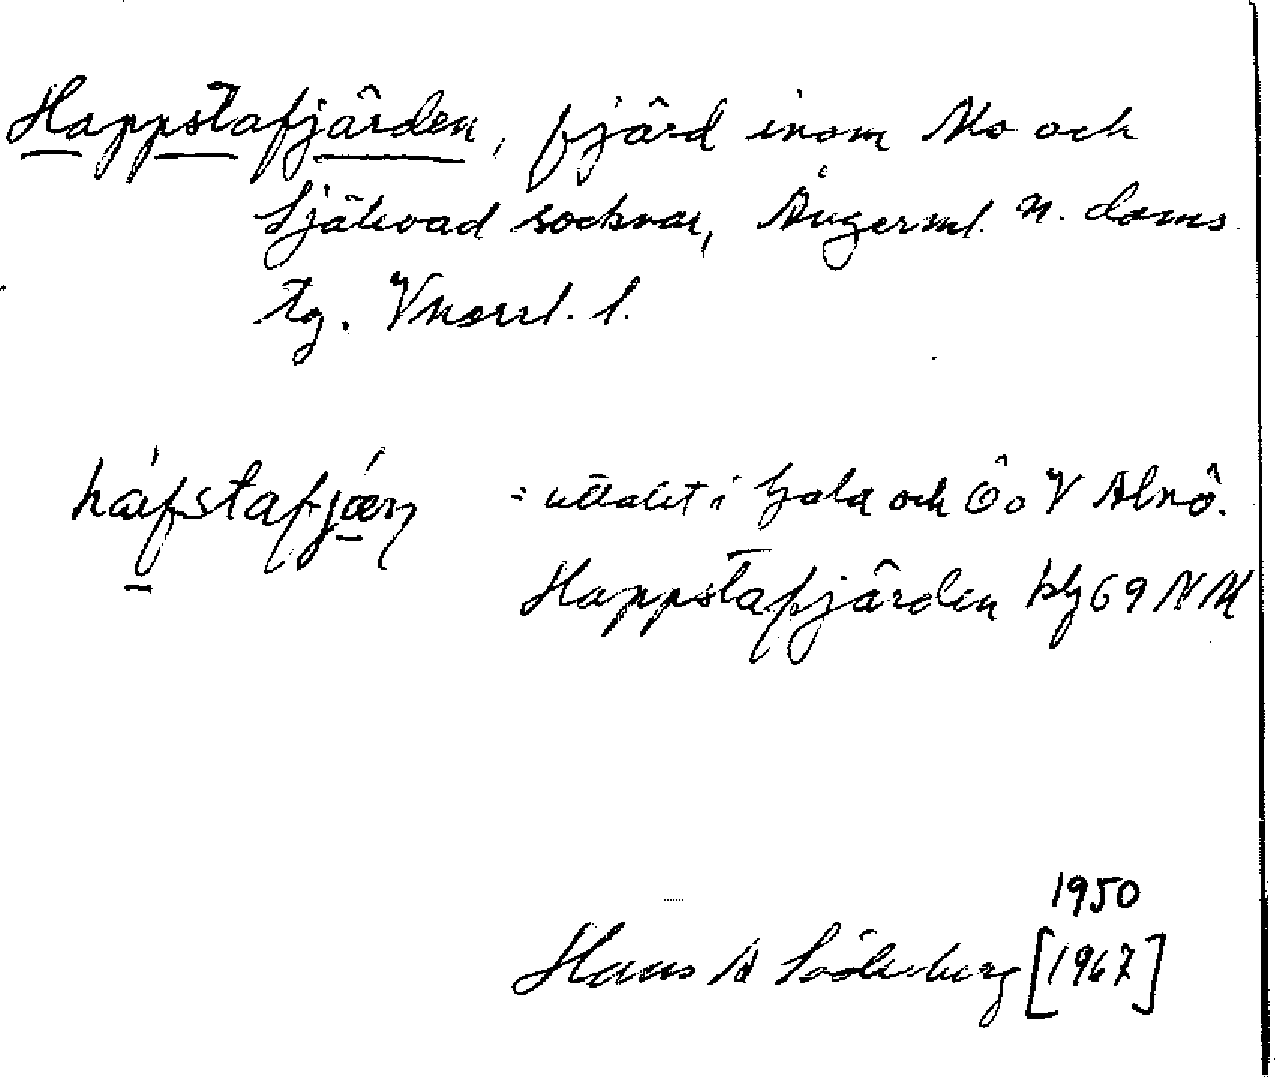 Happstafjärden, fjärd inom Mo och
Själevad socknar, Ångerml. n. doms
tg. Vnorrl. l.
= uttalet i och Ö o V Alnö.
Happstafjärden blg 69 NM
1950
Hans A Söderberg [1967]